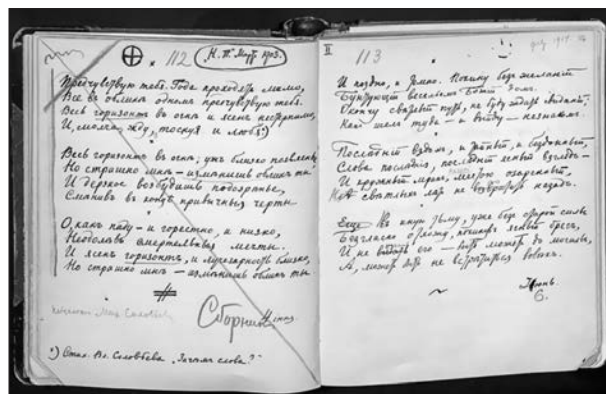 112
Н. П. Март 1903.
Предчувствую тебя. Года проходятъ мимо,
Все въ обликѣ одномъ предчувствую тебя.
Весь горизонтъ въ огнѣ и ясенъ нестерпимо,
И, молча, жду, тоскуя и любя.*)
Весь горизонтъ въ огнѣ, ужъ близко появленье,
Но страшно мнѣ – измѣнишь обликъ ты
И дерзкое возбудишь подозрѣнье,
Смѣнивъ въ концѣ привычныя черты.
О, какъ паду – и горестно, и низко,
Не одолѣвъ смертельныя мечты.
И ясенъ горизонтъ, и лучезарность близко,
Но страшно мнѣ – измѣнишь обликъ ты.
Сборникъ
*) Стих. Вл. Соловьева „Зачѣмъ слова?"
II
113
И поздно, и темно. Покину безъ желаній
Бунтующій весельемъ Божій домъ.
Окончу свѣтлый путь, не буду ждать свиданій,
Какъ шелъ туда – и выйду – незнакомъ.
Послѣдній вздохъ, и тайный, и бездонный,
Слова послѣднія, послѣдній ясный взглядъ –
И кружный мракъ, мечтою озаренный,
А свѣтлыхъ лѣтъ не возвратить назадъ.
Еще въ иную тьму, уже безъ старой силы
Безгласно отхожу, покинувъ ясный брегъ,
И не видать его – быть можетъ до могилы,
А, можетъ быть не встрѣтиться вовѣкъ.
Іюнь.
6.